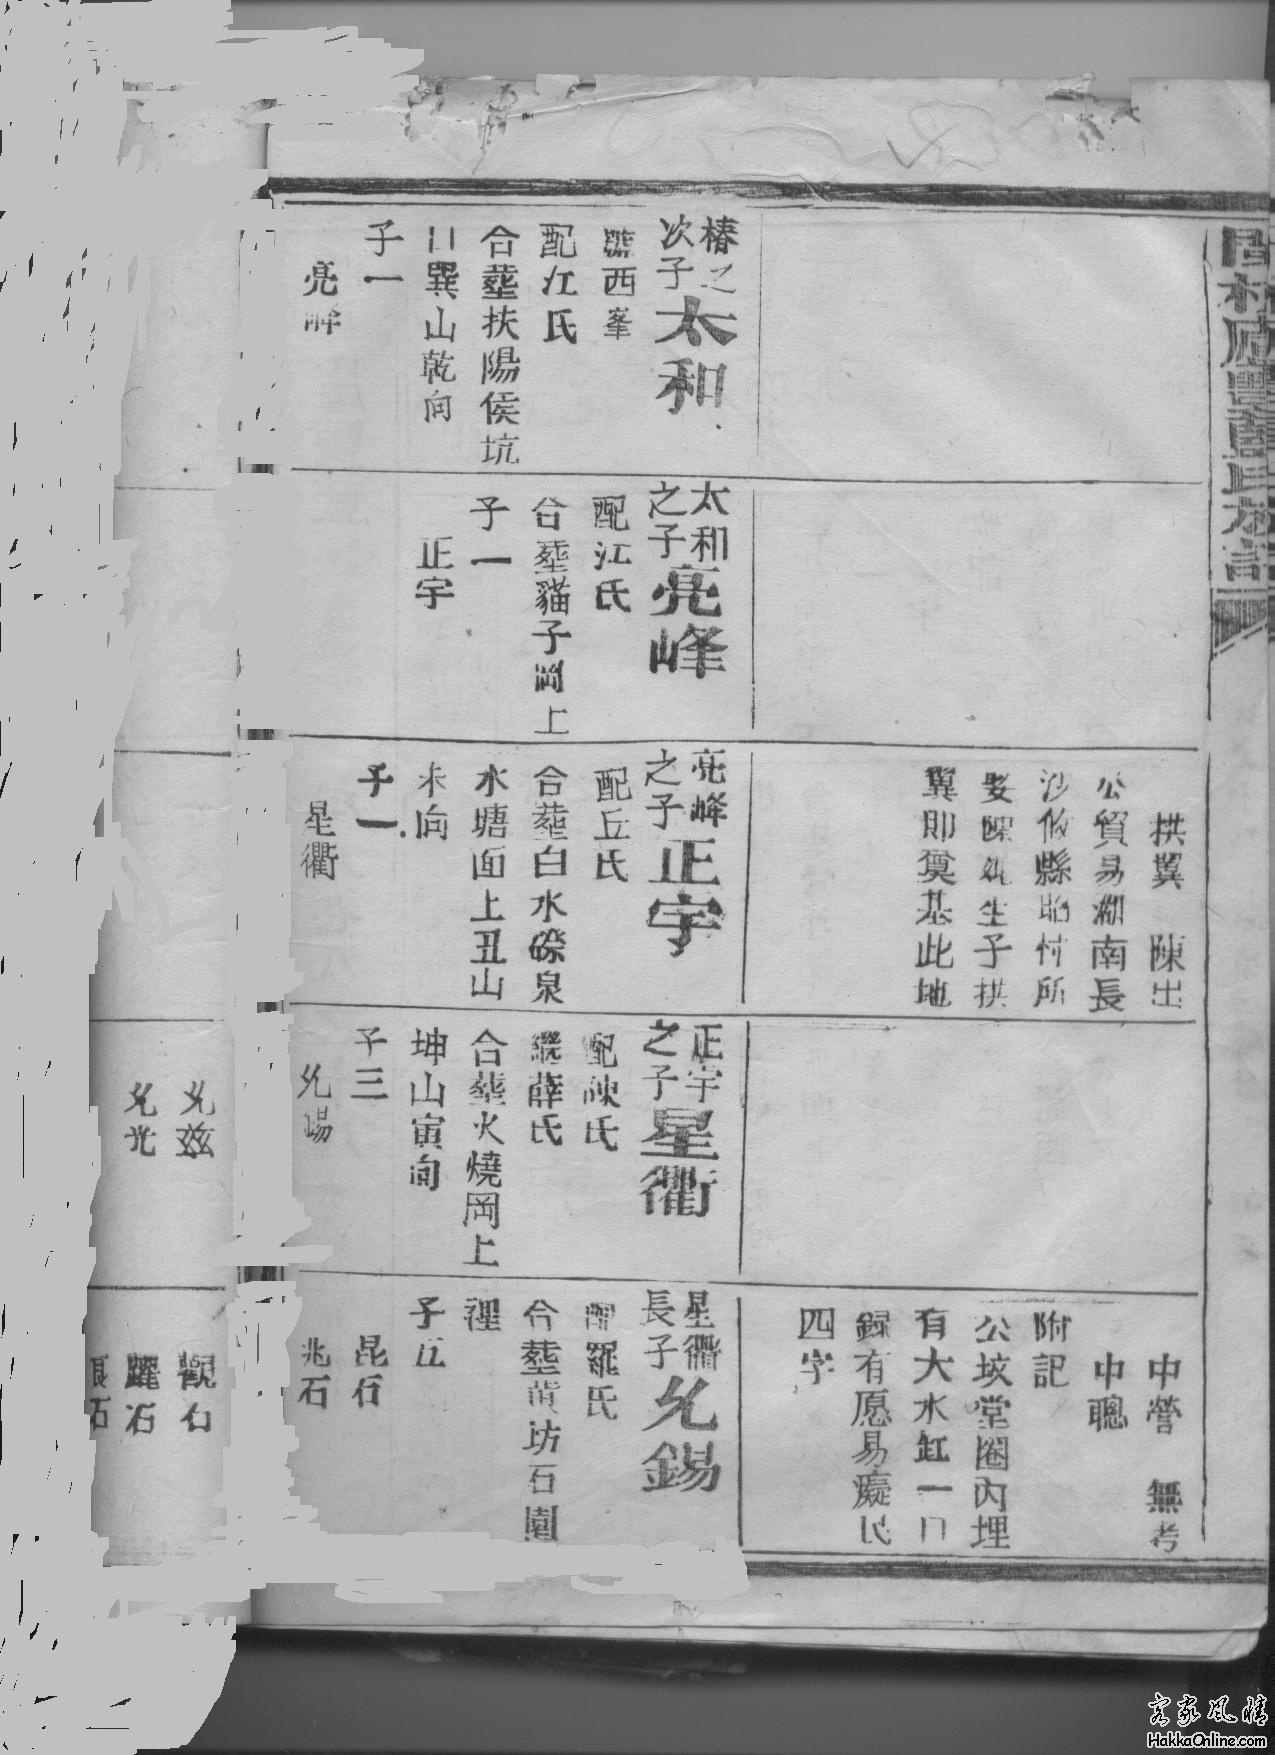 椿之
次子
太和
號西峯
配江氏
合塟扶陽侯坑
口巽山乾向
子一
亮峰
太和
之子
亮峰
配江氏
合塟貓子岡上
子一
正宇
拱翼 陳出
公貿易湖南長
沙攸縣
娶陳氏生子拱
翼即奠基此地
亮峰
之子
正宇
配丘氏
合塟白水磜泉
水塘面上丑山
未向
子一
星衢
正宇
之子
星衢
配陳氏
繼薛氏
合塟火燒岡上
坤山寅向
子三
允錫
允兹
允光
中營 無考
中聰
附記
公坟堂圈內埋
有大水缸一口
錄有愿易癡民
四字
星衢
長子
允錫
配羅氏
合塟黄坊石園
裡
子五
昆石
兆石
觀石
躍石
客家風情
HakkaOnline.com